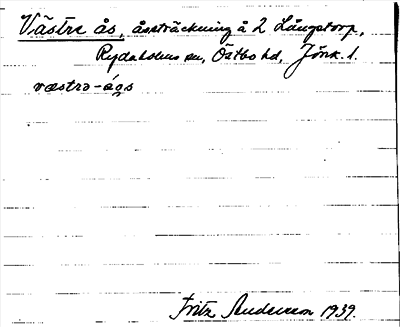 Västre ås, åssträckning å 2 Långstorp,
Rydaholms sn, Östbo hd, Jönk. l.
væstrə-ågs
Fritz Andersson 1939.